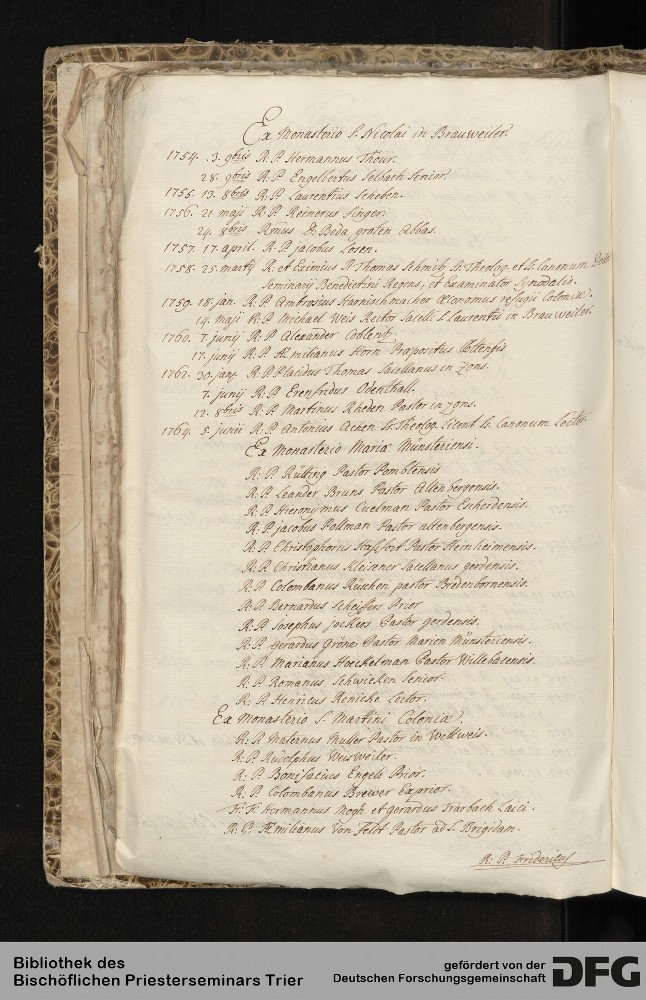 Ex Monasterio S. Nicolai in Brauweiler.
1754. 3. 9bris R: P. Hermannus Thour.
28. 9bris R: P. Engelbertus Selbach Senior.
1755. 13. 8bris R: P. Laurentius Scheben.
1756. 21 maji R: P. Reinerus Singer.
24. 8bris Rmus D: Beda groten Abbas.
1757. 17. april. R: P. jacobus Losen.
1758. 25. martij R: et Eximius P. Thomas Schmitz SS. Theolog. et SS. Canonum
Seminarij Benedictini Regens, et Examinator Synodalis.
1759. 18. jan. R: P. Ambrosius Harnischmacher Œconomus refugii Coloniæ.
19. maji R: P. Michael Weis Rector Sacelli S. Laurentii in Brauweiler.
1760. 7. junij R: P. Alexander Coblentz.
17. junij R: P. Æmilianus Horn Præpositus
1762. 30. jan. R: P. Placidus Thomas Sacellanus in Zons.
7. junij R: P. Erenfridus Odenthall.
12. 8bris R: P. Martinus Rheden Pastor in Zons.
1764. 5. junii R: P. Antonius SS. Theolog. Licent. SS. Canonum Lector.
Ex Monasterio Mariæ Münsteriensi.
R: P. Rülling Pastor Pombsensis
R: P. Leander Bruns Pastor Altenbergensis.
R: P. Hieronymus Cuelman Pastor Escherdensis.
R: P. jacobus Pollman Pastor altenbergensis.
R: P. Christophorus Hassfort Pastor Steinheimensis.
R: P. Christianus Kleisener Sacellanus gerdensis.
R: P. Colombanus Rüschen pastor Bredenbornensis.
R: P. Bernardus Scheiffers Prior
R: P. Josephus jockers Pastor gerdensis.
R: P. gerardus Gröne Pastor Marien Münsteriensis.
R: P. Marianus Hoeckelman Pastor Willebacensis.
R: P. Romanus Schwieken Senior.
R: P. Henricus Reniche Lector.
Ex Monasterio S. Martini Coloniæ.
R: P. Maternus Muller Pastor in Weltweis.
R: P. Rudolphus Weisweiler.
R: P. Bonifacius Engels Prior.
R: P. Colombanus Brewer Exprior.
Fr: Fr: Hermannus Mogh et gerardus Trarbach Laici.
R: P. Æmilianus Von Feldt Pastor ad S. Brigidam.
R: P. Fridericus
Bibliothek des
Bischöflichen Priesterseminars Trier
gefördert von der
Deutschen Forschungsgemeinschaft
DFG